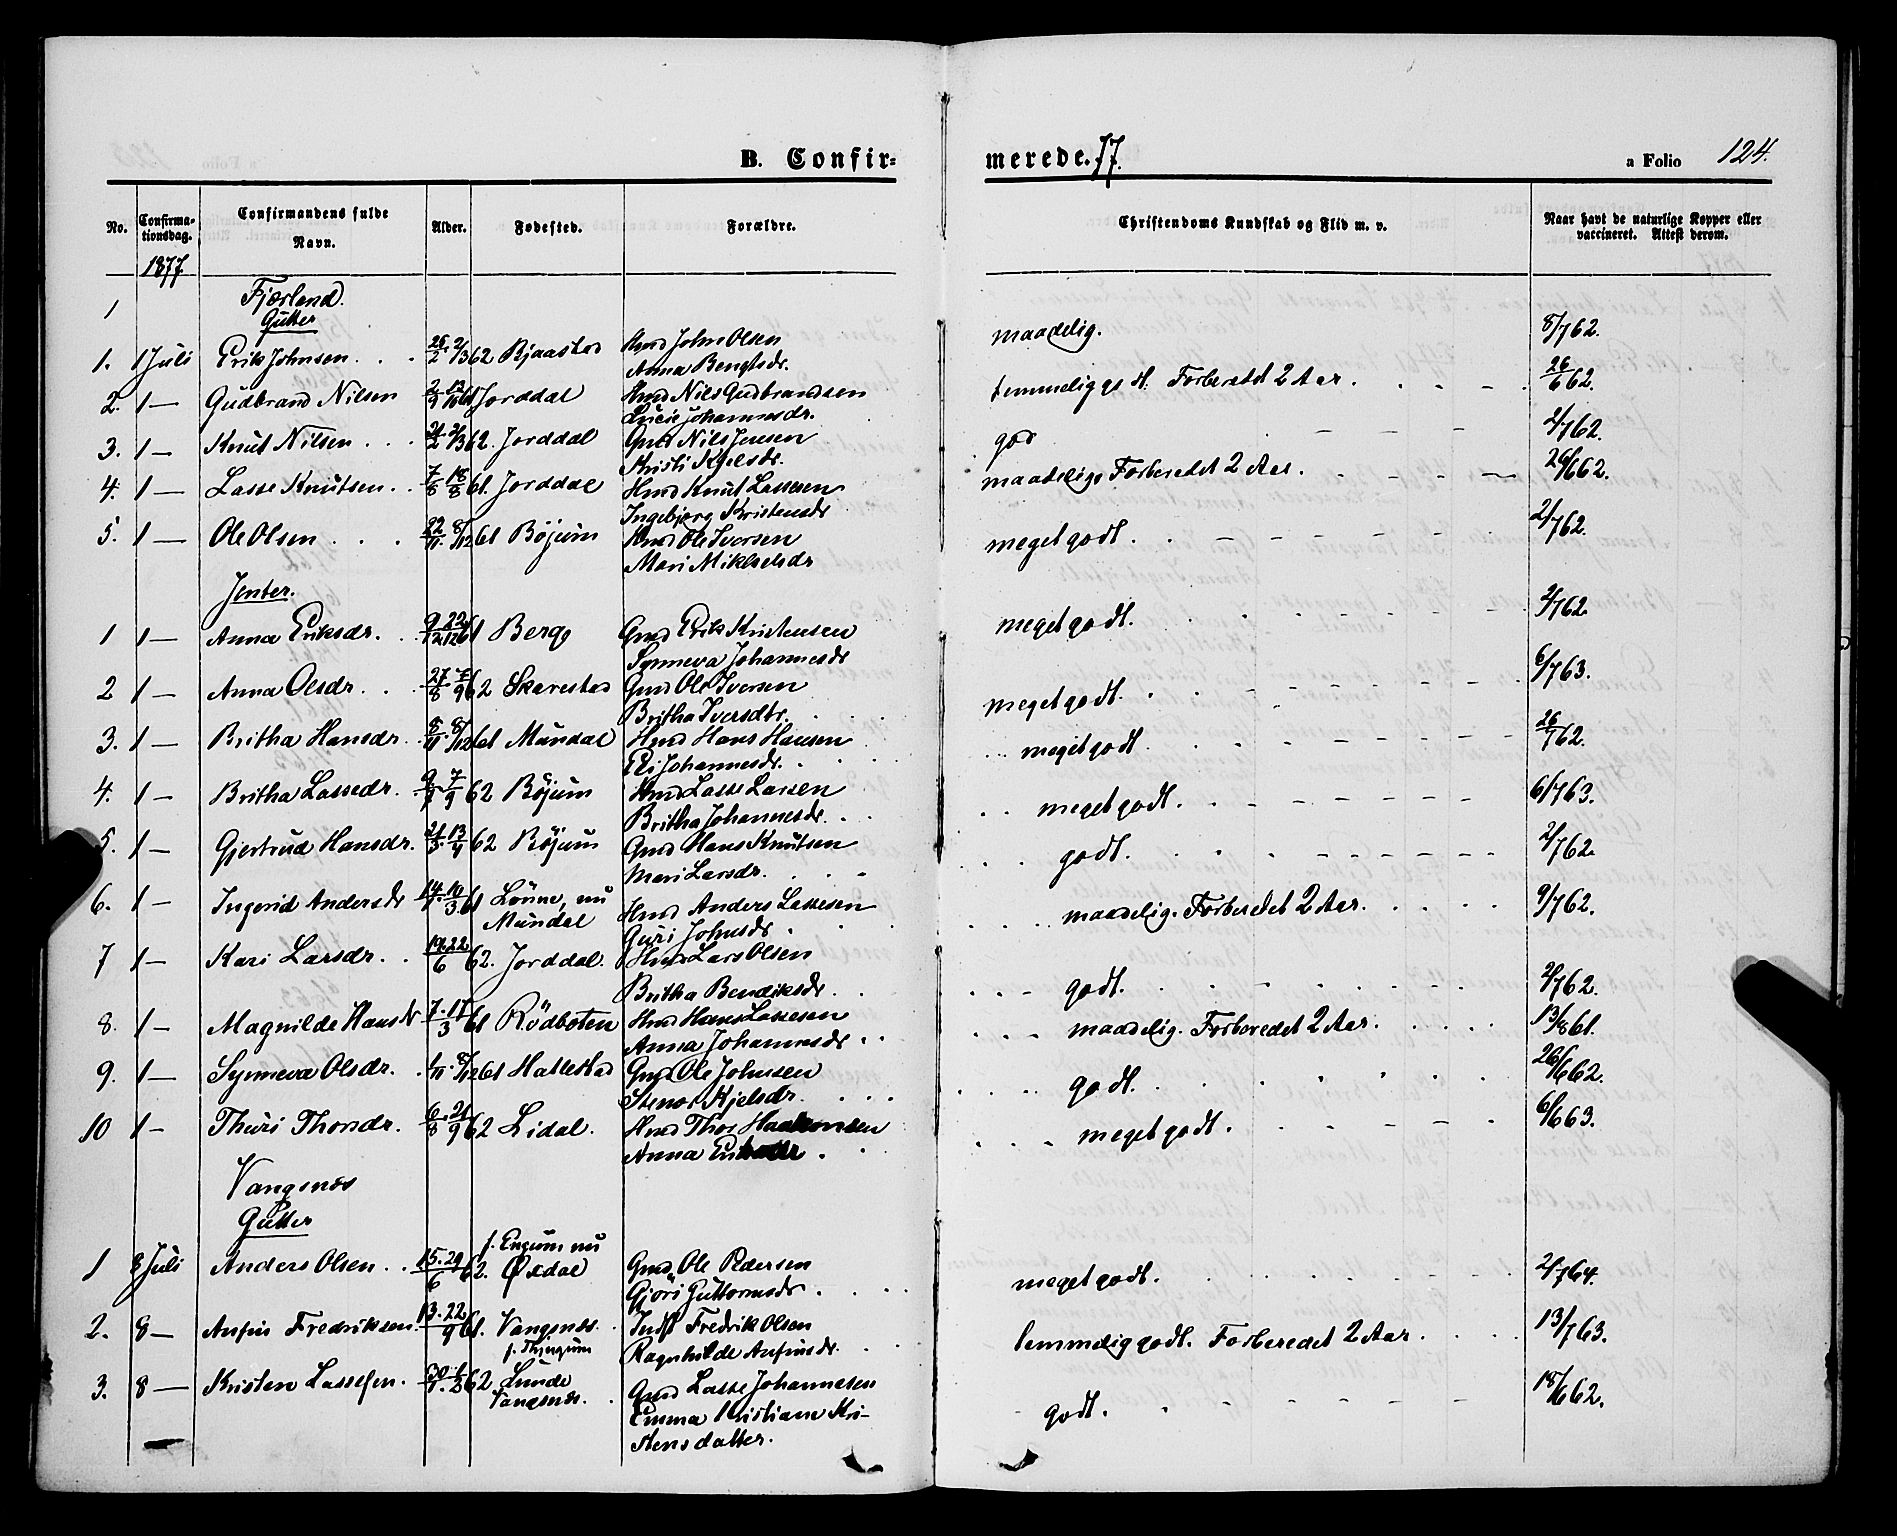 B. Confir=
merede. 77.
a Folio 124.
No. Confirma-tionsdag. Confirmandens fulde Navn. Alder. Fødested. Forældre. Christendoms Kundskab og Flid m. v. Naar havt de naturlige Kopper eller vaccineret. Attest derom.
1877
1 Fjærland.
Gutter
1. 1 Juli Erik Johnsen . . . 2/3 62 Bjaastad Hmd John Olsen maadelig. 8/7 62.
Anna Bengtsdr.
2. 1 — Gudbrand Nilsen Jorddal Hmd Nils Gudbrandsen temmelig g. Forberedt 2 Aar. 26/6 62.
Lucie Johannesdr.
3. 1 — Knut Nilsen . . . 21/2 2/3 62. Jorddal Gmd Nils Jensen god 2/7 62.
Kristi Kjelsdr.
4. 1 — Lasse Knutsen . . 7/8 18/8 61. Jorddal Hmd Knut Lassesen maadelig. Forberedt 2 Aar. 26/6 62.
Ingebjørg Kristensdr
5. 1 — Ole Olsen . . . 22/11. 8/12 61 Bøjum Hmd Ole Iversen meget godt. 2/7 62.
Mari Mikkelsdr
Jenter.
1 1 — Anna Eriksdr. . . 9/12 22/12 61 Berge Gmd Erik Kristensen meget godt. 2/7 62.
Synneva Johannesdr
2 1 — Anna Olsdr. . . 27/8 7/9 62 Skarestad Gmd Ole Iversen meget godt. 6/7 63.
Britha Iversdtr.
3. 1 — Britha Hansdr. 5/11 8/12 61 Mundal Hmd Hans Hansen meget godt. 26/7 62.
Eli Johannesdr.
4. 1 — Britha Lassedr. 7/9 62 Bøjum Hmd Lasse Larsen meget godt. 6/7 63.
Britha Johannesdr.
5. 1 — Gjertrud Hansdr. 21/3 13/4 62 Bøjum Gmd Hans Knutsen godt. 2/7 62.
Mari Larsdr.
6. 1 — Ingerid Andersdr 10/3 61 Lønne, nu Hmd Anders Lassesen maadelig. Forberedet 2 Aar. 9/7 62.
Mundal Guri Johnsdr
7 1 — Kari Larsdr. . . 19. 22/6 62. Jorddal. Hmd Lars Olsen godt. 2/7 62.
Britha Bendiksdr.
8. 1 — Magnilde Hansdr 7. 17/3 61 Rødbotten Hmd Hans Lassesen maadelig. Forberedet 2 Aar. 13/8 61.
Anna Johannesdr
9. 1 — Synneva Olsdr. 1/11. 8/12 61 Hattestad Gmd Ole Johnsen godt. 26/6 62.
Stenor Kjelsdr.
10 1 — Thuri Thorsdr. 6/8 21/9 62 Lidal. Hmd Thor Haakonsen meget godt. 6/6 63.
Anna
Vangsnes
Gutter
1 8 Juli Anders Olsen . . 15. 29/6 62. f. Engum nu Øxdal Gmd Ole Pedersen meget godt. 2/7 64.
Gjøri Guttormsdr.
2. 8 — Anfin Fredriksen. 13. 22/9 61. Vangsnes. Indst Fredrik Olsen temmelig godt. Forberedet 2 Aar. 13/7 63.
Ragnhilde Anfinsdr.
3. 8 — Kristen Lassesen. 62 Lunde Gmd Lasse Johannesen godt. 18/6 62.
Vangsnes. Emma Kristiane Kri-
stensdatter.